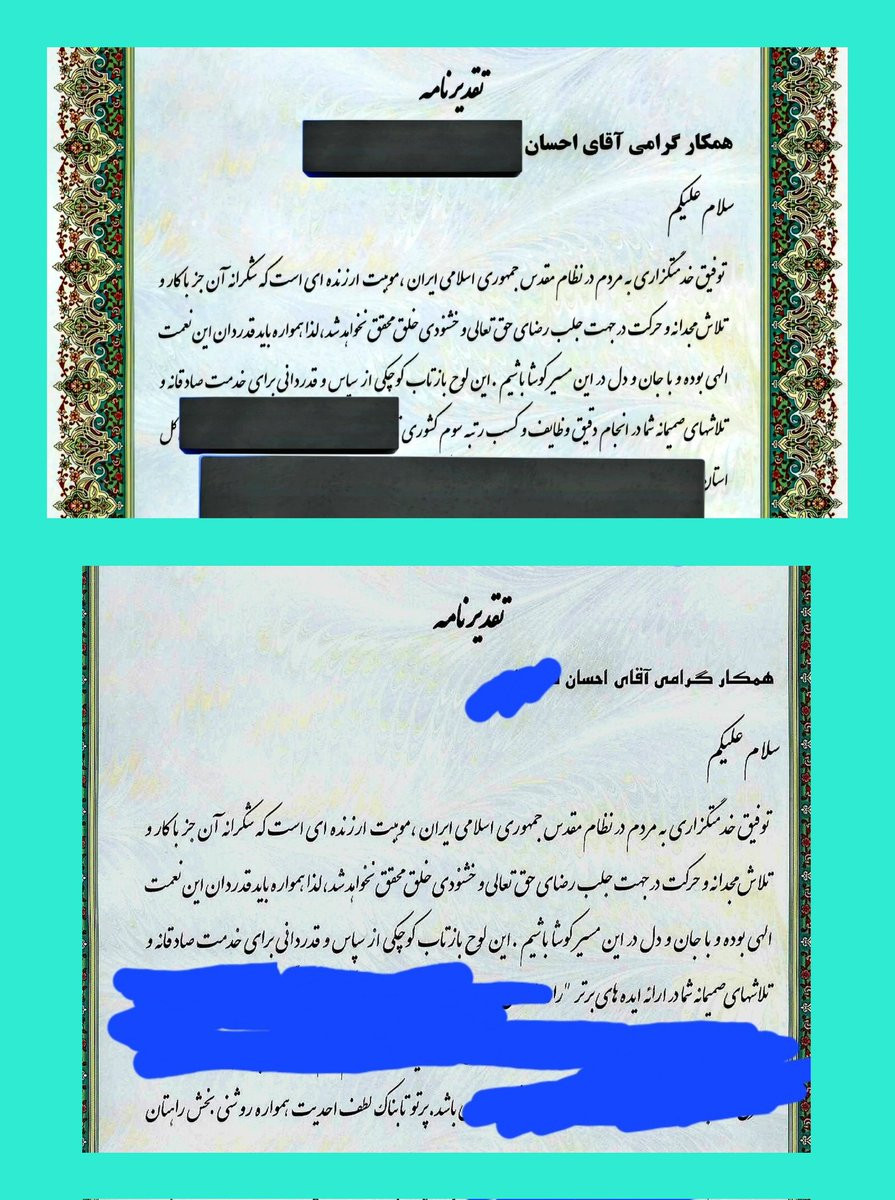 تقدیرنامه
همکار گرامی آقای احسان
سلام علیکم
توفیق خدمتگزاری به مردم در نظام مقدس جمهوری اسلامی ایران ،موهبت ارزنده ای است که شکرانه آن جز با کار و
تلاش مجدانه و حرکت در جهت جلب رضای حق تعالی و خشنودی خلق محقق نخواهد شد، لذا همواره باید قدردان این نعمت
الهی بوده و با جان و دل در این مسیر کوشا باشیم . این لوح بازتاب کوچکی از سپاس و قدردانی برای خدمت صادقانه و
تلاشهای صمیمانه شما در انجام دقیق وظایف و کسب رتبه سوم کشوری کل
استان
تقدیرنامه
همکار گرامی آقای احسان
سلام علیکم
توفیق خدمتگزاری به مردم در نظام مقدس جمهوری اسلامی ایران ،موهبت ارزنده ای است که شکرانه آن جز با کار و
تلاش مجدانه و حرکت در جهت جلب رضای حق تعالی و خشنودی خلق محقق نخواهد شد، لذا همواره باید قدردان این نعمت
الهی بوده و با جان و دل در این مسیر کوشا باشیم . این لوح بازتاب کوچکی از سپاس و قدردانی برای خدمت صادقانه و
تلاشهای صمیمانه شما در ارائه ایده های برتر
باشد. پرتو تابناک لطف احدیت همواره روشنی بخش راهتان